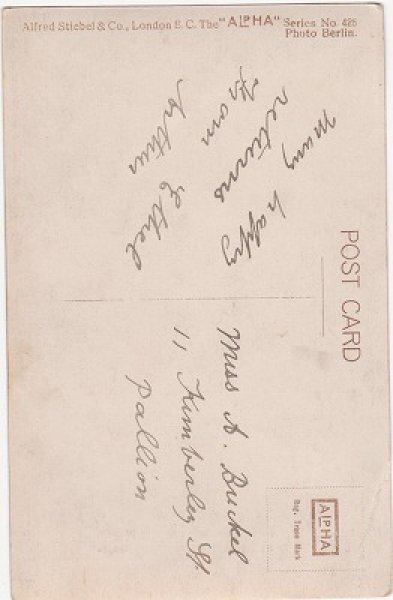 Alfred Stiebel & Co., London E.C. The "ALPHA" Series No. 425
Photo Berlin.
POST CARD
Many happy
returns
from
Arthur & Ethel
Miss A. Buckel
11 Kimberley St
Pallion
ALPHA
Reg. Trade Mark